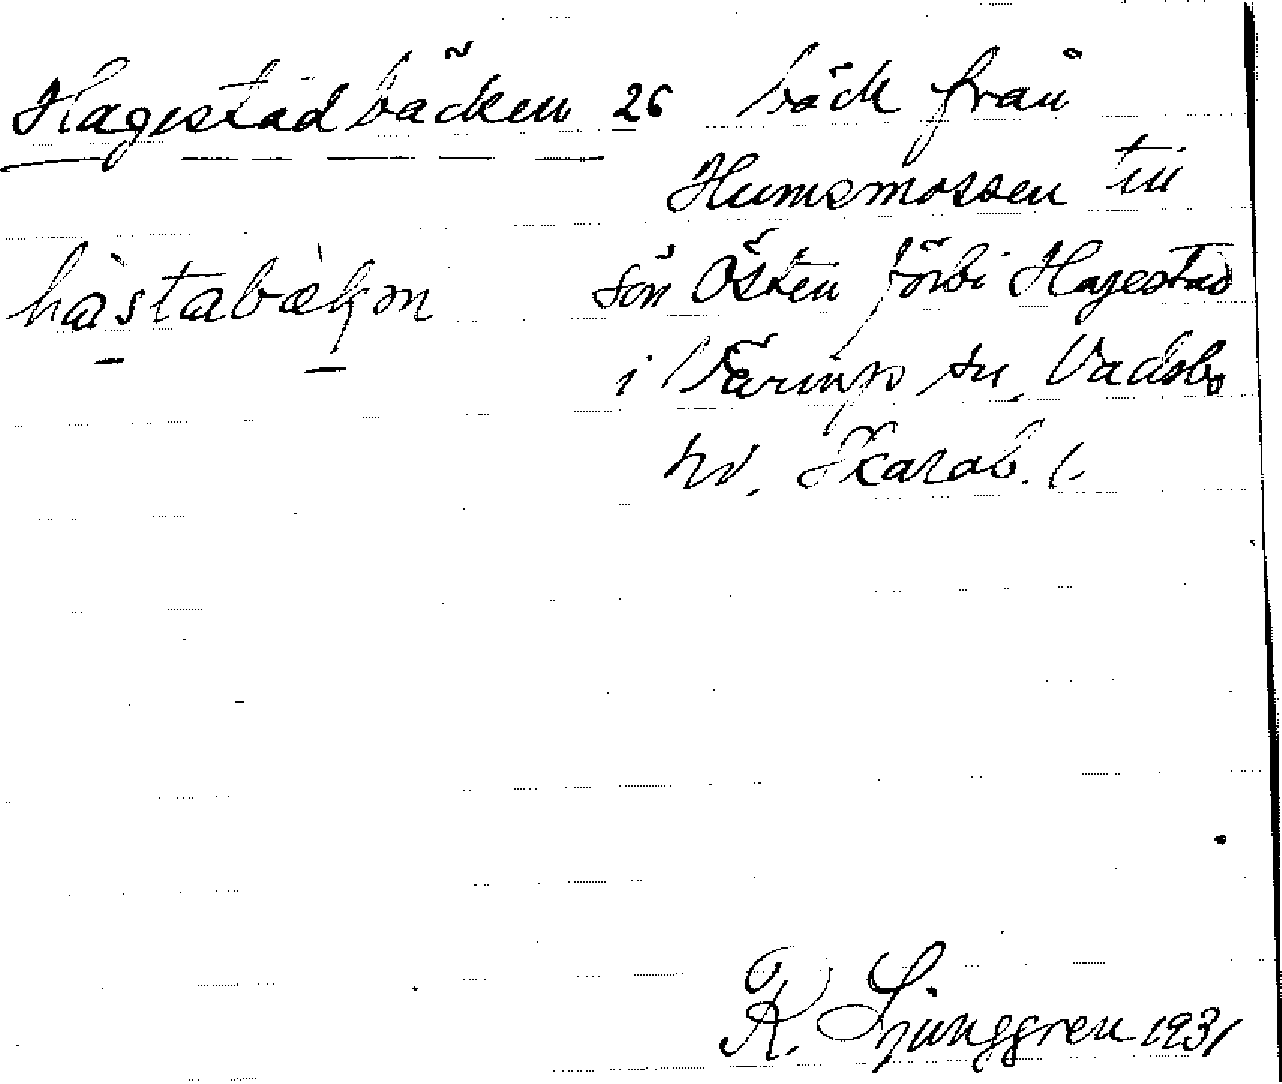 Hagestadbäcken 26 bäck från
Humsmossen till
håstabækən sön Östen förbi Hagestad
i Värings sn, Vadsbo
hd. Skarab. l.
K. Ljunggren 1931